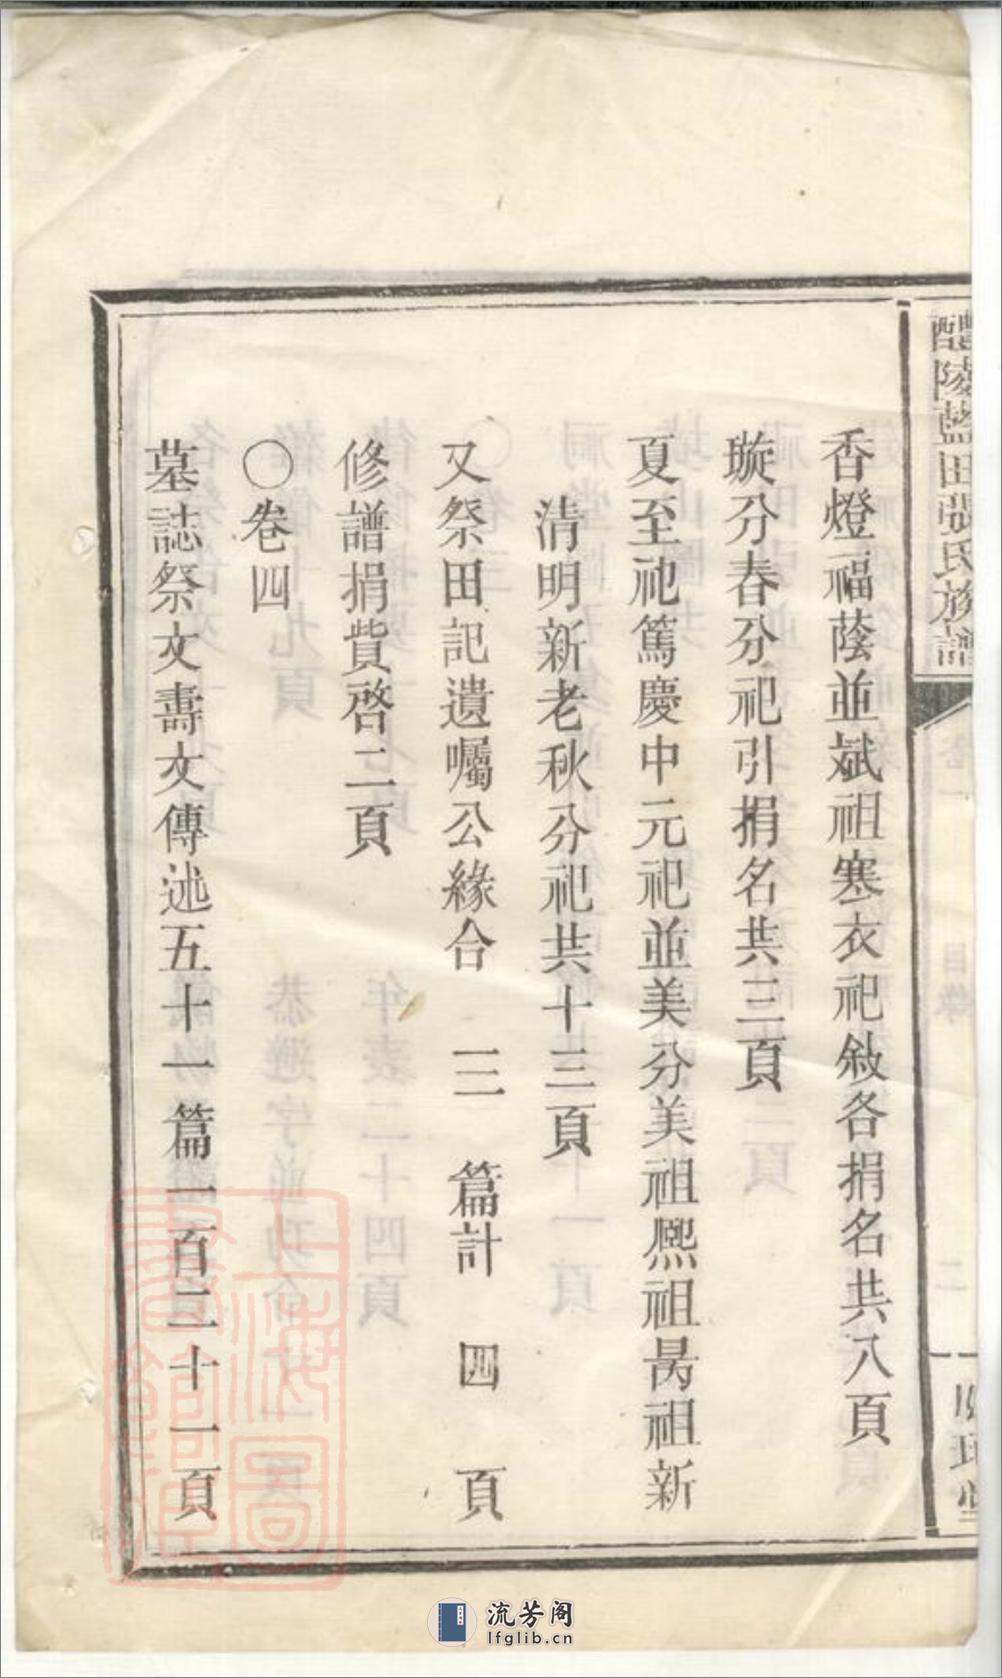 醴陵藍田張氏族譜
香燈福蔭並斌祖寒衣祀敘各捐名共八頁
璇分春分祀引捐名共三頁
夏至祀篤慶中元祀並美分美祖熈祖昺祖新
清明新老秋分祀共十三頁
又祭田記遺囑公緣合 三 篇計 四 頁
修譜捐貲啓二頁
〇卷四
墓誌祭文壽文傳述五十一篇一百二十一頁
流芳阁
lfglib.cn